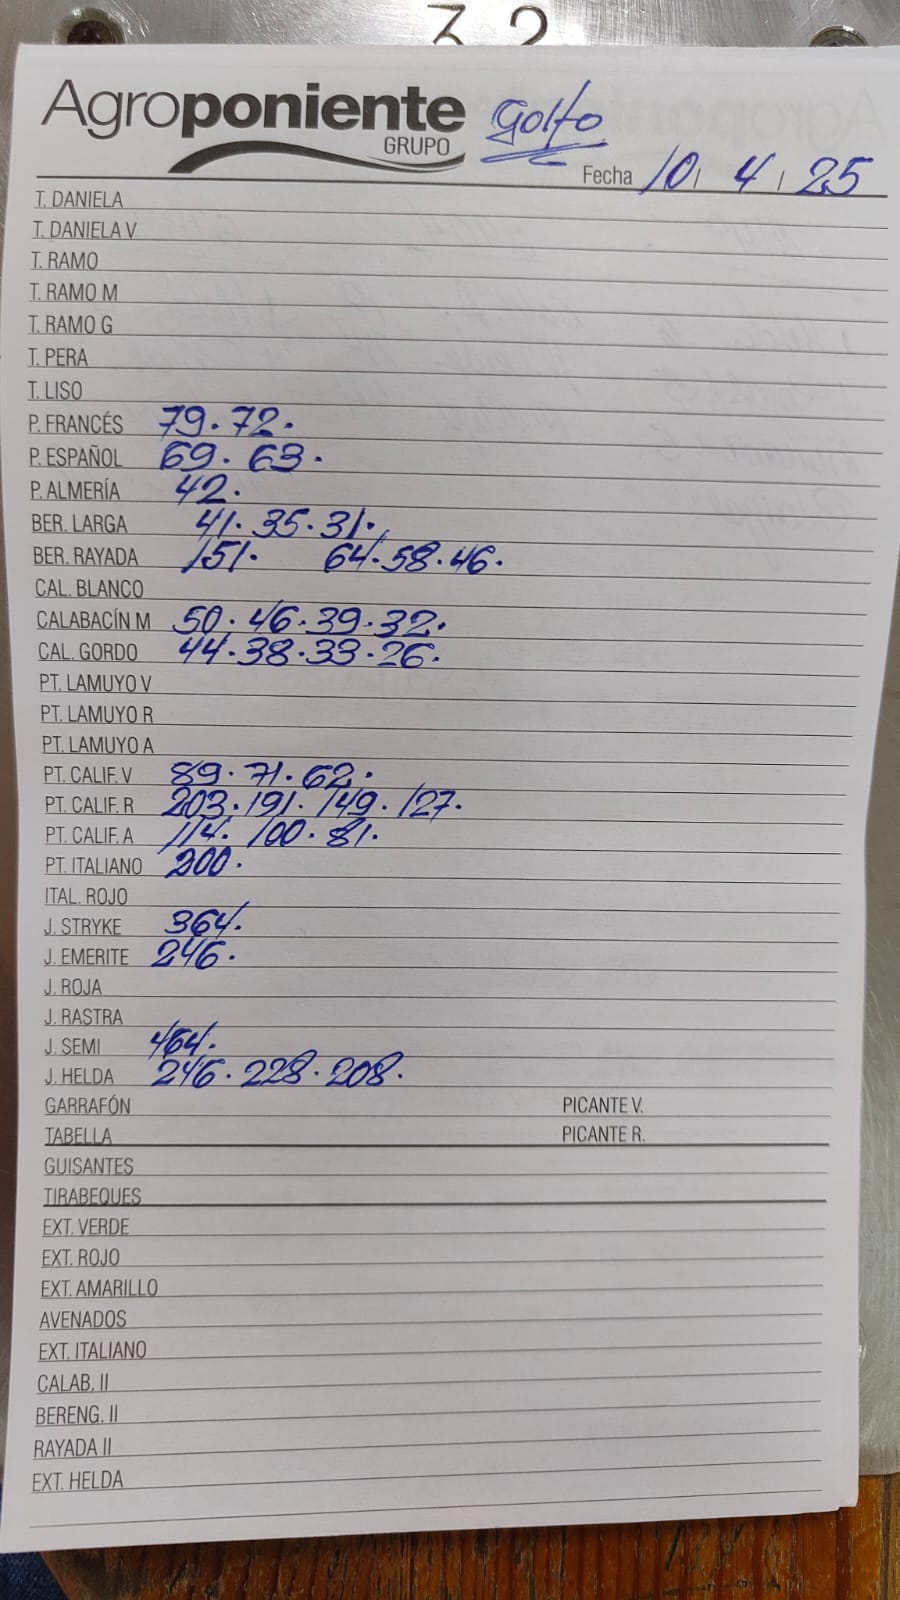 32
Agroponiente
GRUPO
Golfo
Fecha 10 / 4 / 25
T. DANIELA
T. DANIELA V
T. RAMO
T. RAMO M
T. RAMO G
T. PERA
T. LISO
P. FRANCÉS 79. 72.
P. ESPAÑOL 69. 63.
P. ALMERÍA 42.
BER. LARGA 41. 35. 31.
BER. RAYADA 151. 64. 58. 46.
CAL. BLANCO
CALABACÍN M 50. 46. 39. 32.
CAL. GORDO 44. 38. 33. 26.
PT. LAMUYO V
PT. LAMUYO R
PT. LAMUYO A
PT. CALIF. V 89. 71. 62.
PT. CALIF. R 203. 191. 149. 127.
PT. CALIF. A 114. 100. 81.
PT. ITALIANO 200.
ITAL. ROJO
J. STRYKE 364.
J. EMERITE 246.
J. ROJA
J. RASTRA
J. SEMI 464.
J. HELDA 246. 228. 208.
GARRAFÓN PICANTE V.
TABELLA PICANTE R.
GUISANTES
TIRABEQUES
EXT. VERDE
EXT. ROJO
EXT. AMARILLO
AVENADOS
EXT. ITALIANO
CALAB. II
BERENG. II
RAYADA II
EXT. HELDA